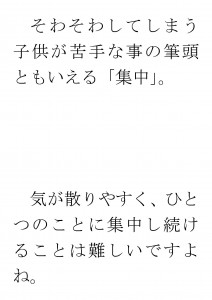 そわそわしてしまう
子供が苦手な事の筆頭
ともいえる「集中」。
　気が散りやすく、ひと
つのことに集中し続け
ることは難しいですよ
ね。